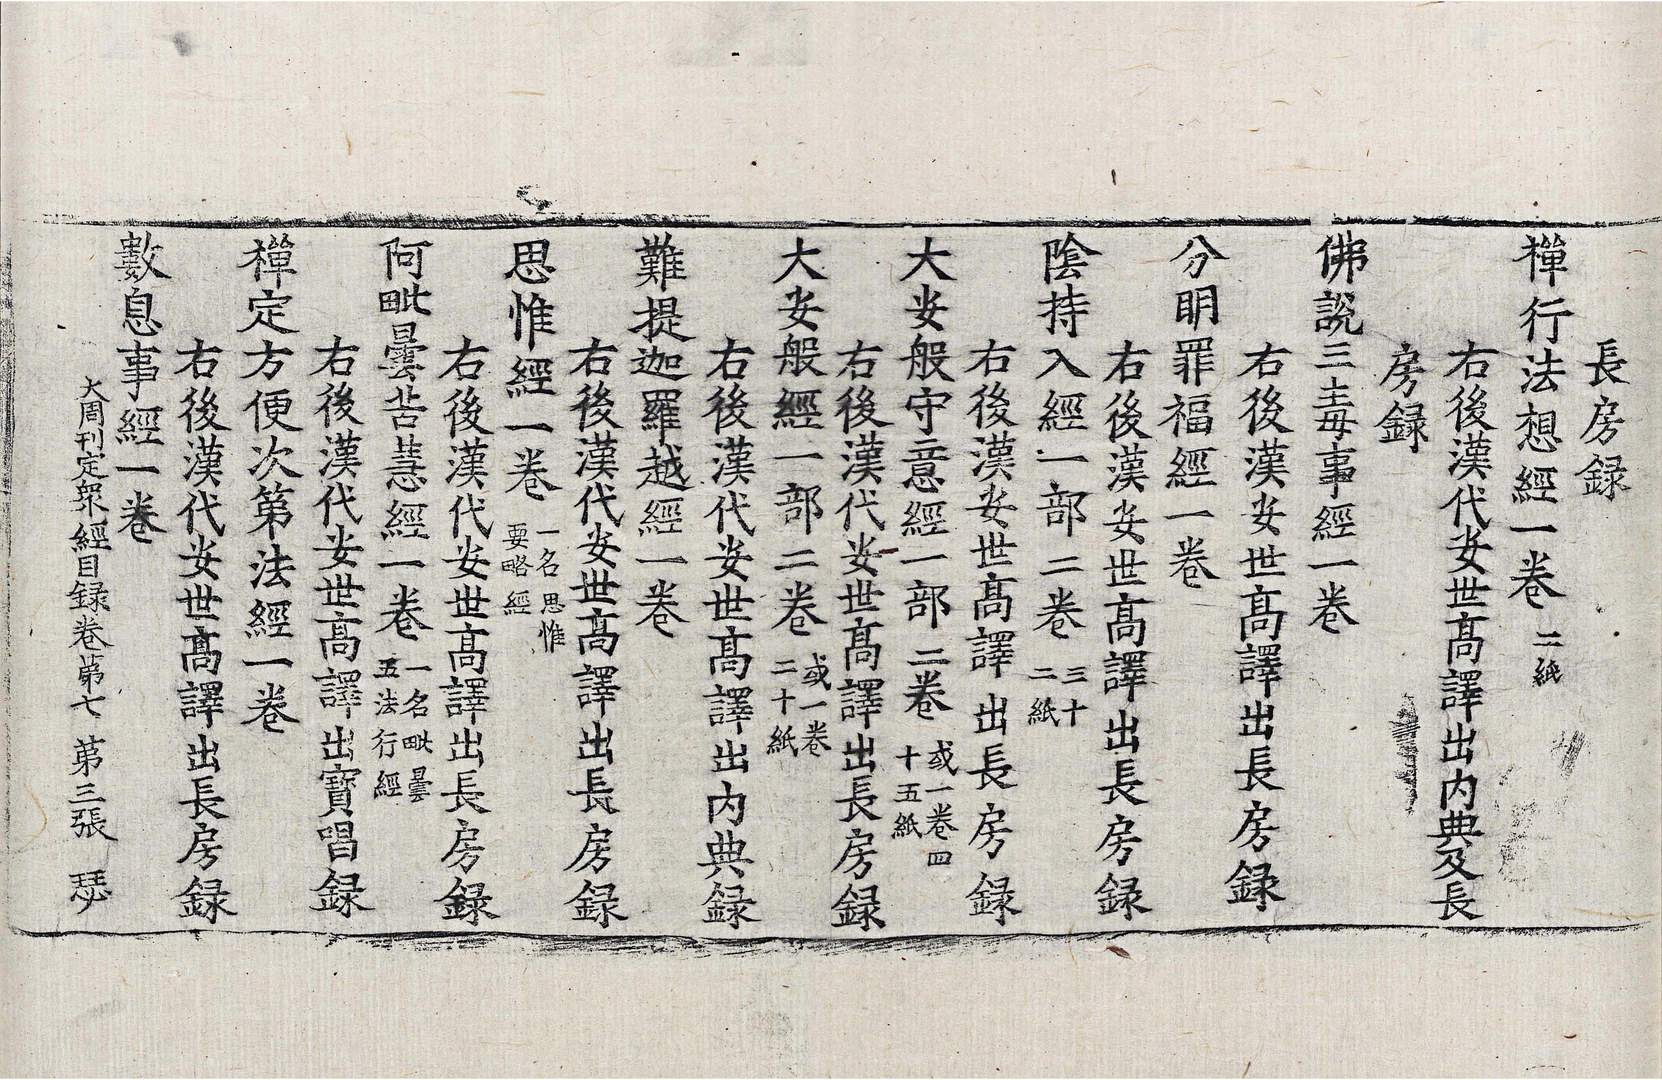 長房録
禪行法想經一卷 二紙
右後漢代安世髙譯出内典及長
房録
佛說三毒事經一卷
右後漢安世髙譯出長房録
分明罪福經一卷
右後漢安世髙譯出長房録
陰持入經一部二卷 三十二紙
右後漢安世髙譯出長房録
大安般守意經一部二卷 或一卷四十五紙
右後漢代安世髙譯出長房録
大安般經一部二卷 或一卷二十紙
右後漢代安世髙譯出内典録
難提迦羅越經一卷
右後漢代安世髙譯出長房録
思惟經一卷 一名思惟要略經
右後漢代安世髙譯出長房録
阿毗曇苦慧經一卷 一名毗曇五法行經
右後漢代安世髙譯出寶唱録
禪定方便次第法經一卷
右後漢代安世髙譯出長房録
數息事經一卷
大周刊定衆經目録卷第七 第三張 瑟